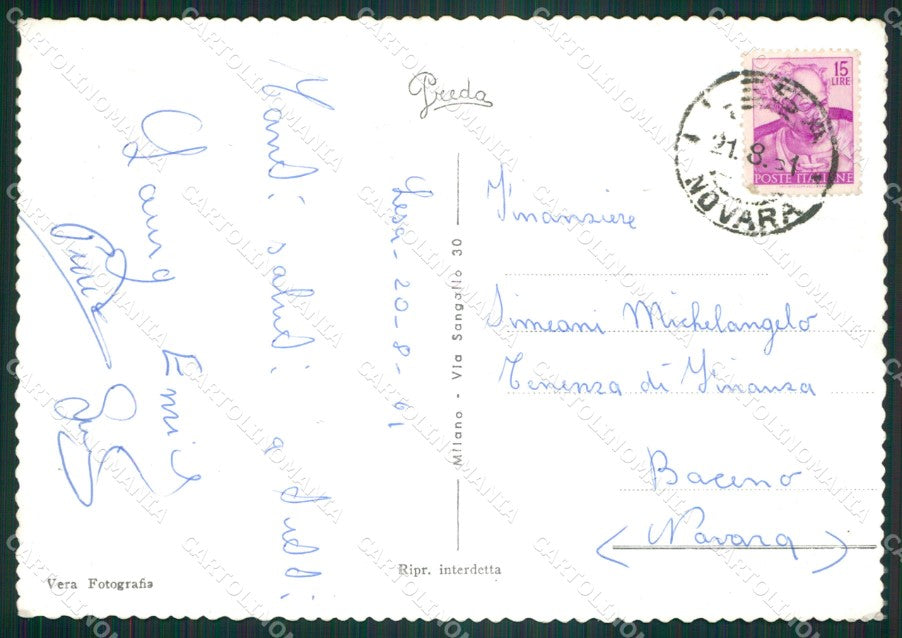 Preda
15
LIRE
POSTE ITALIANE
21.8.61
NOVARA
Lesa - 20-8-61
Tanti saluti a tutti
Laura Emil
Milano - Via Sangallo 30
Finanziere
Simeani Michelangelo
Tenenza di Finanza
Baceno
(Novara)
Vera Fotografia
Ripr. interdetta
CARTOLINOMANIA